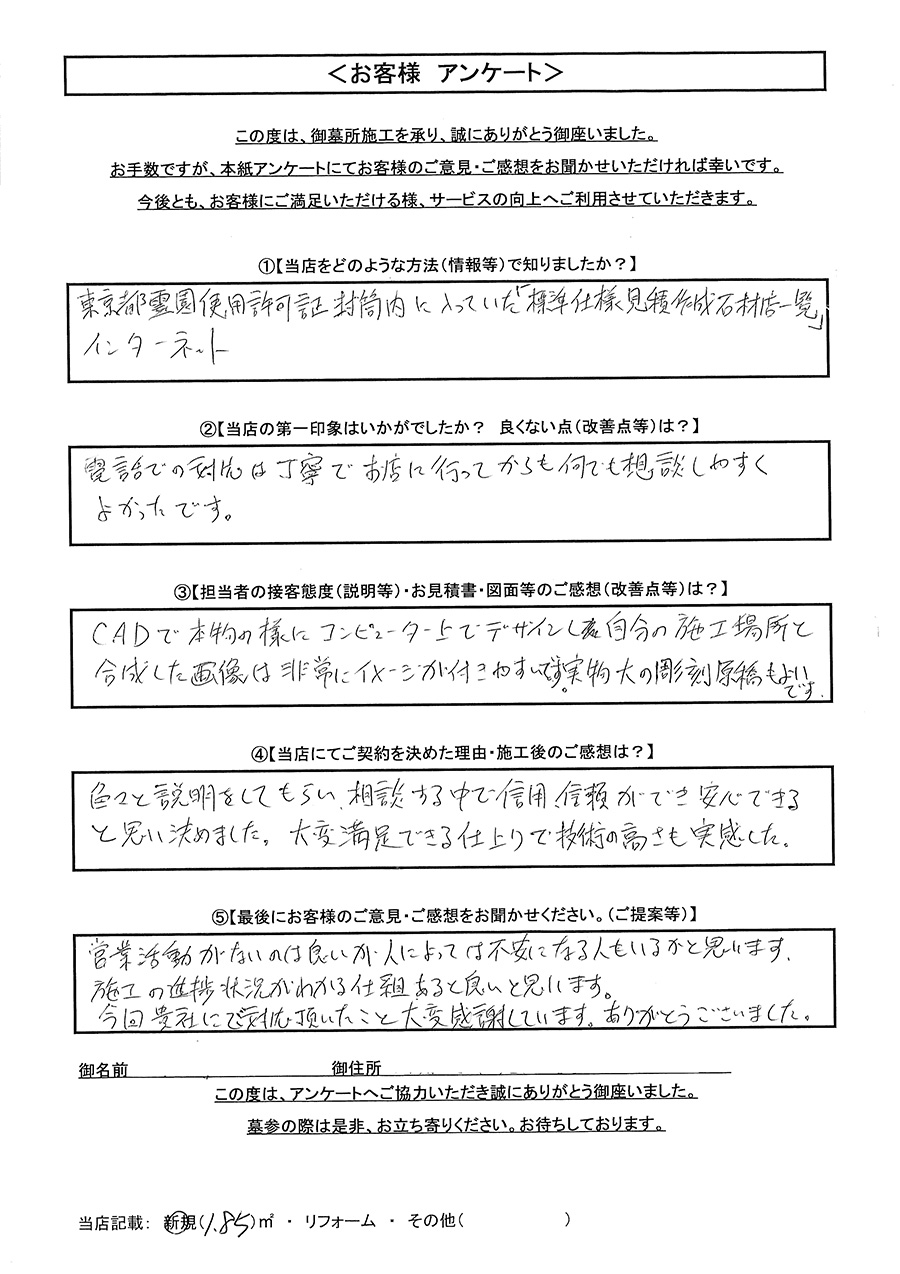 ＜お客様　アンケート＞
この度は、御墓所施工を承り、誠にありがとう御座いました。
お手数ですが、本紙アンケートにてお客様のご意見・ご感想をお聞かせいただければ幸いです。
今後とも、お客様にご満足いただける様、サービスの向上へご利用させていただきます。
①【当店をどのような方法（情報等）で知りましたか？】
東京都霊園使用許可証封筒内に入っていた「標準仕様見積作成石材店一覧」
インターネット
②【当店の第一印象はいかがでしたか？　良くない点（改善点等）は？】
電話での対応は丁寧でお店に行ってからも何でも相談しやすく
よかったです。
③【担当者の接客態度（説明等）・お見積書・図面等のご感想（改善点等）は？】
CADで本物の様にコンピューター上でデザインし自分の施工場所と
合成した画像は非常にイメージが付きやすいです。実物大の彫刻原稿もよい
です.
④【当店にてご契約を決めた理由・施工後のご感想は？】
色々と説明をしてもらい、相談する中で信用、信頼ができ安心できる
と思い決めました。大変満足できる仕上りで技術の高さも実感した。
⑤【最後にお客様のご意見・ご感想をお聞かせください。（ご提案等）】
営業活動がないのは良いが、人によっては不安になる人もいるかと思います、
施工の進捗状況がわかる仕組あると良いと思います。
今回貴社にご対応頂いたこと大変感謝しています。ありがとうございました。
御名前　御住所
この度は、アンケートへご協力いただき誠にありがとう御座いました。
墓参の際は是非、お立ち寄りください。お待ちしております。
当店記載：　新規（1.85）㎡　・　リフォーム　・　その他（　　　　　　）